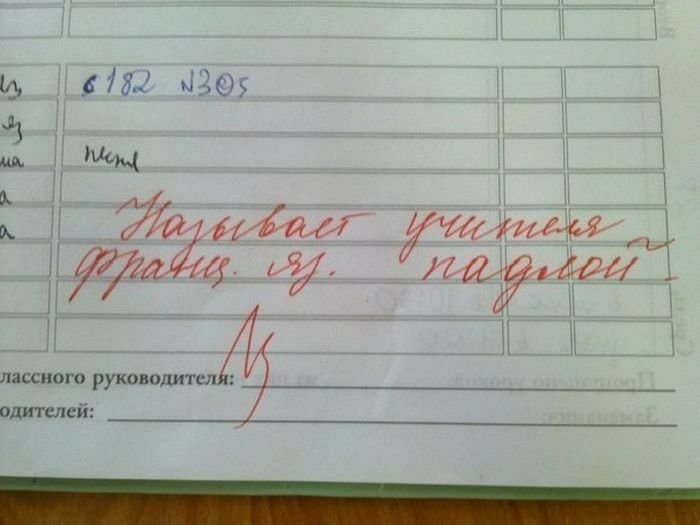 с 182 №305
яз
ма песня
а
Называет учителя
а
франц. яз. падлой
лассного руководителя:
одителей: